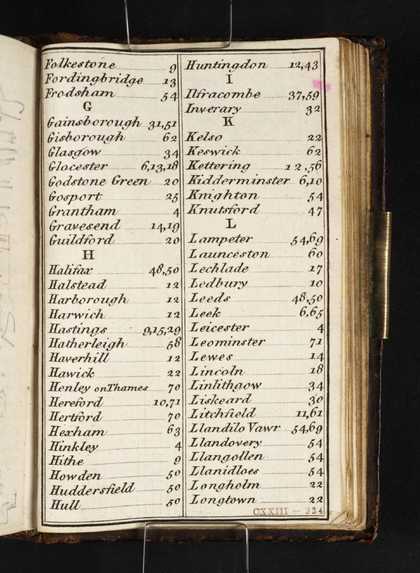 Folkestone 9
Fordingbridge 13
Frodsham 54
G
Gainsborough 31,51
Gisborough 62
Glasgow 34
Glocester 6,13,18
Godstone Green 20
Gosport 25
Grantham 4
Gravesend 14,19
Guildford 20
H
Halifax 48,50
Halstead 12
Harborough 12
Harwich 12
Hastings 9,15,29
Hatherleigh 58
Haverhill 12
Hawick 22
Henley on Thames 70
Hereford 10,71
Hertford 70
Hexham 63
Hinkley 4
Hithe 9
Howden 50
Huddersfield 50
Hull 50
Huntingdon 12,43
I
Ilfracombe 37,59
Inverary 32
K
Kelso 22
Keswick 62
Kettering 12,56
Kidderminster 6,10
Knighton 54
Knutsford 47
L
Lampeter 54,69
Launceston 60
Lechlade 17
Ledbury 10
Leeds 48,50
Leek 6,65
Leicester 4
Leominster 71
Lewes 14
Lincoln 18
Linlithgow 34
Liskeard 30
Litchfield 11,61
Llandilo Vawr 54,69
Llandovery 54
Llangollen 54
Llanidloes 54
Longholm 22
Longtown 22
CXXIII - 334